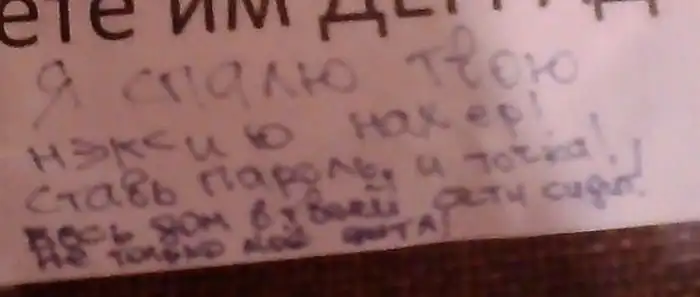 ете им ДЕГРАД
Я спалю твою
нэксию нахер!
ставь пароль, и точка!
весь дом в твоей сети сидит.
не только моя